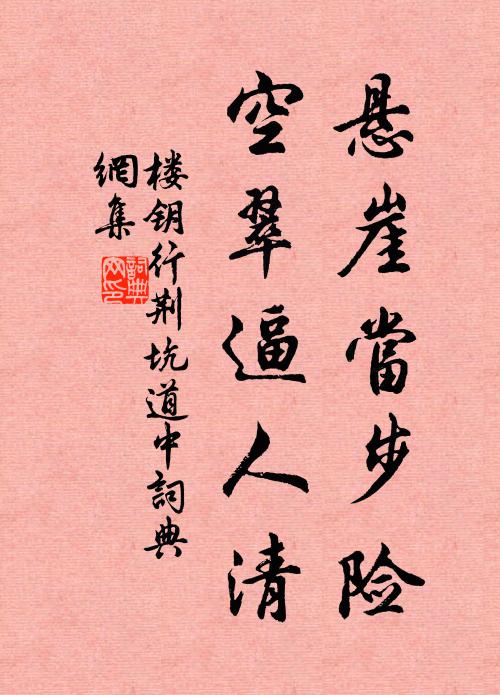 悬崖當步险
空翠逼人清
楼钥行荆坑道中詞典
網集
詞典
网印